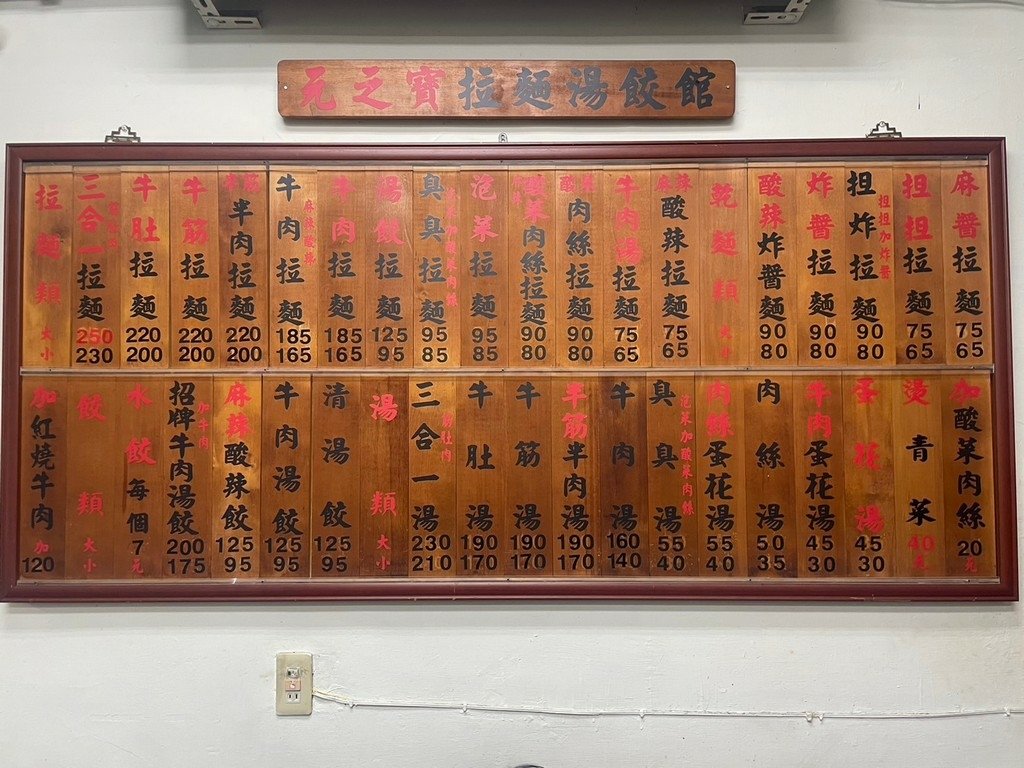 元之寶拉麵湯餃館
拉麵類 大 小
三合一拉麵 250 230
牛肚拉麵 220 200
牛筋拉麵 220 200
半肉拉麵 220 200
牛肉拉麵 麻辣酸辣 185 165
牛肉拉麵 185 165
湯餃拉麵 125 95
臭臭拉麵 泡菜加酸菜肉絲 95 85
泡菜拉麵 95 85
酸菜肉絲拉麵 90 80
肉絲拉麵 90 80
牛肉湯拉麵 75 65
麻辣酸辣拉麵 75 65
乾麵類 大 小
酸辣炸醬麵 90 80
炸醬拉麵 90 80
担炸拉麵 担担加炸醬 90 80
担担拉麵 75 65
麻醬拉麵 75 65
加紅燒牛肉 加 120
餃類 大 小
水餃每個7元
招牌牛肉湯餃 加牛肉 200 175
麻辣酸辣餃 125 95
牛肉湯餃 125 95
清湯餃 125 95
湯類 大 小
三合一湯 筋肚肉 230 210
牛肚湯 190 170
牛筋湯 190 170
半筋半肉湯 190 170
牛肉湯 160 140
臭臭湯 泡菜加酸菜肉絲 55 40
肉絲蛋花湯 55 40
肉絲湯 50 35
牛肉蛋花湯 45 30
蛋花湯 45 30
燙青菜 40元
加酸菜肉絲 20元